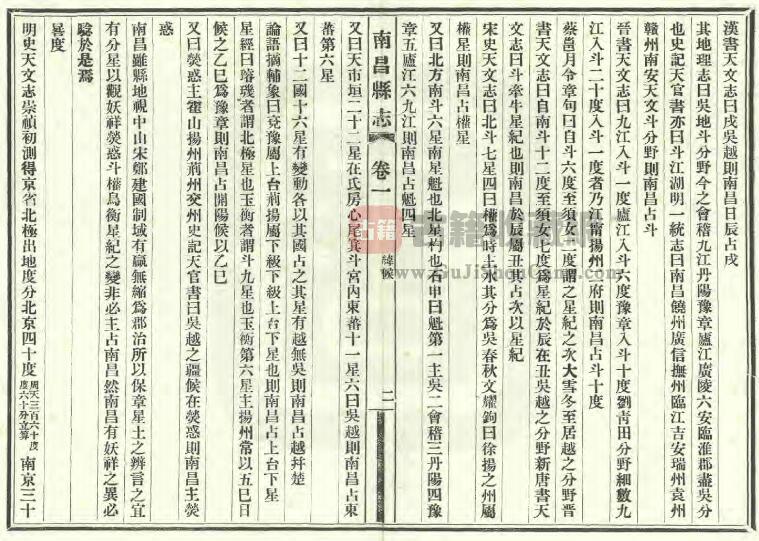 漢書天文志曰戌吳越則南昌日辰占戌
其地理志曰吳地斗分野今之會稽九江丹陽豫章廬江廣陵六安臨淮郡盡吳分
也史記天官書亦曰斗江湖明一統志曰南昌饒州廣信撫州臨江吉安瑞州袁州
贛州南安天文斗分野則南昌占斗
晉書天文志曰九江入斗一度廬江入斗六度豫章入斗十度劉青田分野細數九
江入斗二十度入斗一度者乃江南揚州 府則南昌占斗十度
蔡邕月令章句曰自斗六度至須女二度謂之星紀之次大雪冬至居越之分野晉
書天文志曰自南斗十二度至須女七度爲星紀於辰在丑吳越之分野新唐書天
文志曰斗牽牛星紀也則南昌於辰屬丑其占次以星紀
宋史天文志曰北斗七星四曰權爲時主水其分爲吳春秋文耀鉤曰徐揚之州屬
權星則南昌占權星
又曰北方南斗六星南星魁也北星杓也石申曰魁第一主吳二會稽三丹陽四豫
章五廬江六九江則南昌占魁四星
南昌縣志
卷一
緯候
二
又曰天市垣二十二星在氐房心尾箕斗宮內東蕃十一星六曰吳越則南昌占東
蕃第六星
又曰十二國十六星有變動各以其國占之其星有越無吳則南昌占越幷楚
論語摘輔象曰兗豫屬上台荊揚屬下級下級上台下星也則南昌占上台下星
星經曰璿璣者謂北極星也玉衡者謂斗九星也玉衡第六星主揚州常以五巳日
候之乙巳爲豫章則南昌占開陽候以乙巳
又曰熒惑主霍山揚州荊州交州史記天官書曰吳越之疆候在熒惑則南昌主熒
惑
南昌雖縣地視中山宋鄭建國制域有贏無縮爲郡治所以保章星土之辨言之宜
有分星以觀妖祥熒惑斗權鳥衡星紀之變非必主占南昌然南昌有妖祥之異必
驗於是焉
晷度
明史天文志崇禎初測得京省北極出地度分北京四十度周天三百六十度度六十分立算南京三十
古籍
www.GuJiShuGang.com